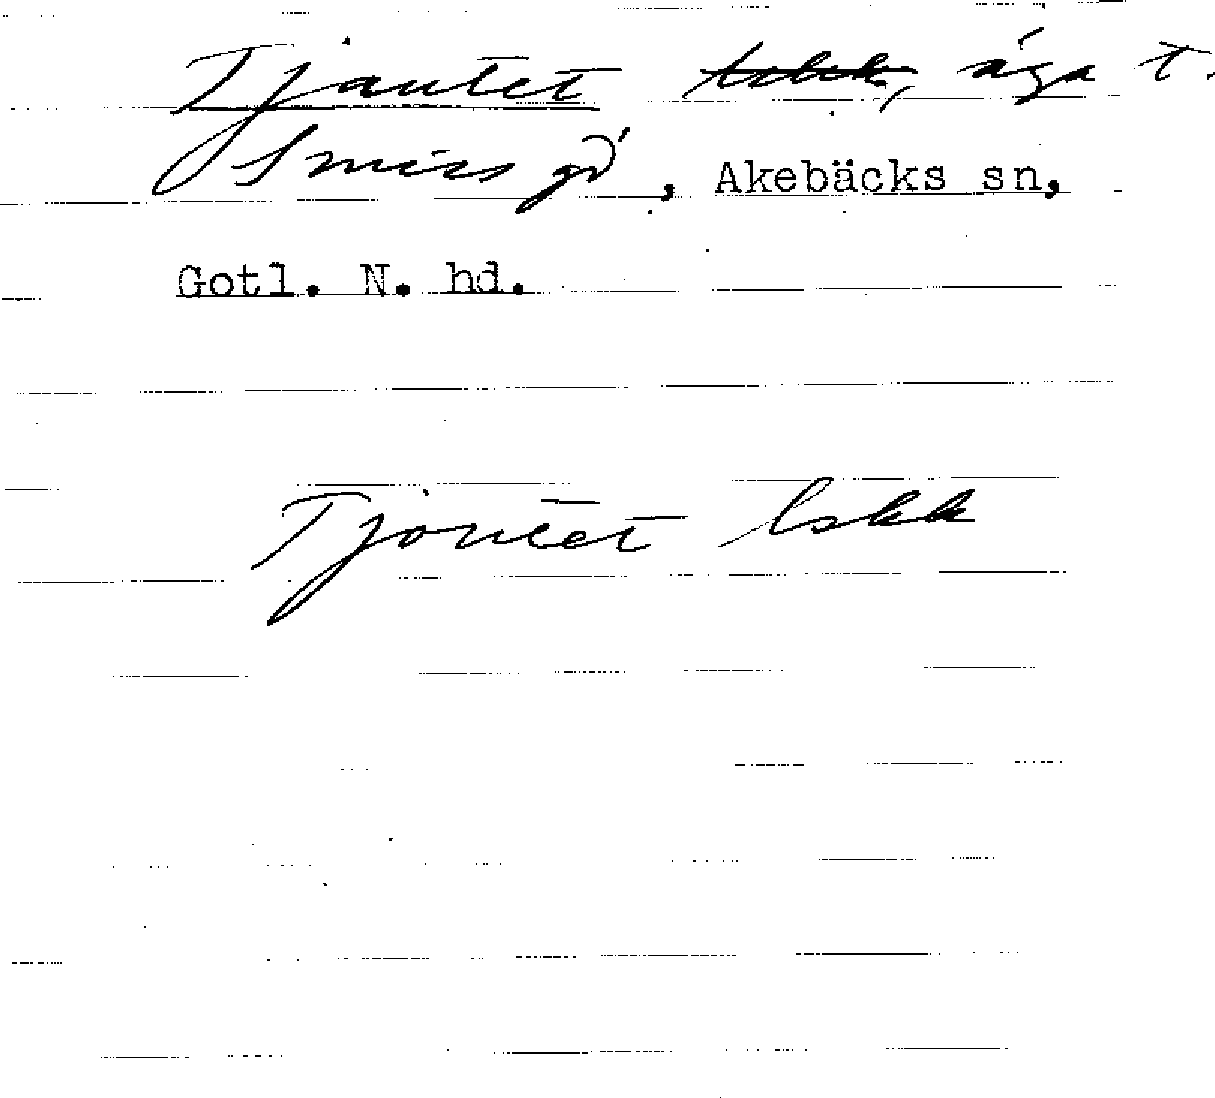 Tjautet, äga t.
Smiss gd, Akebäcks sn,
Gotl. N. hd.
Tjoutet Lskk